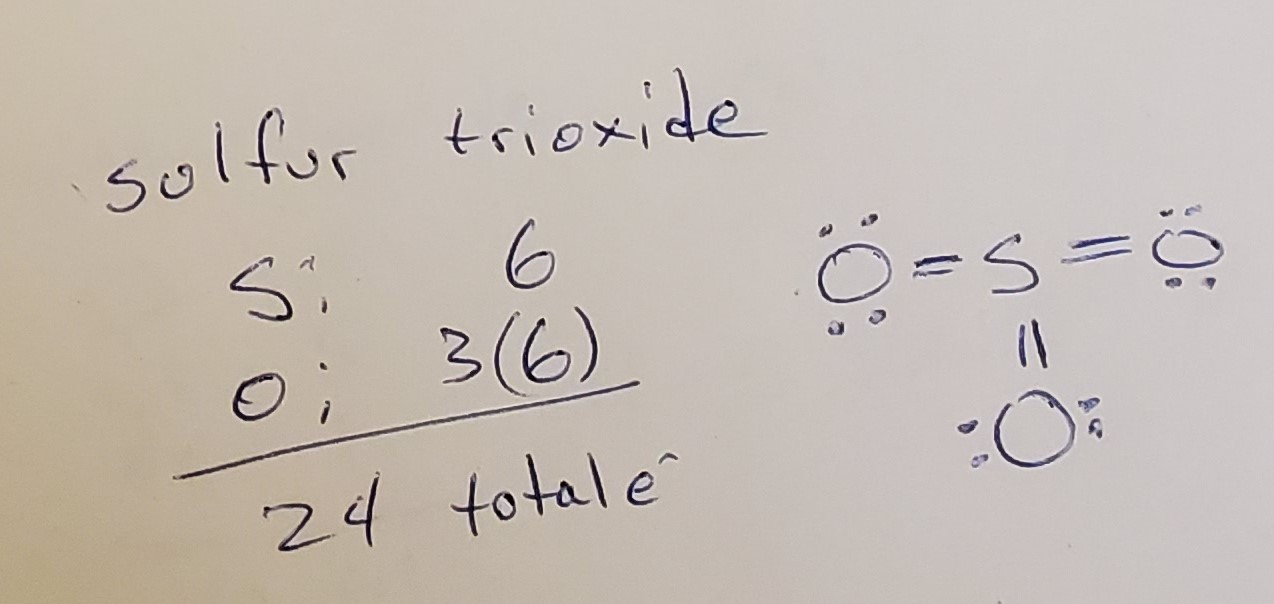 solfur trioxide
S: 6
O: 3(6)
24 total e⁻
O=S=O
||
O